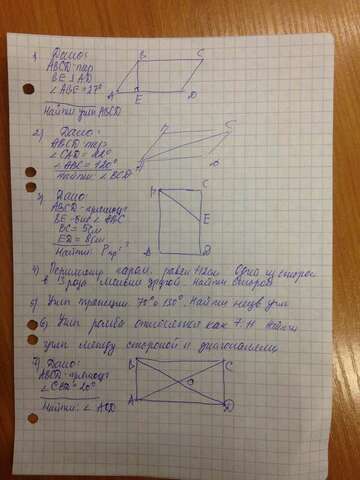 1) Дано:
ABCD - пар
BE ⊥ AD
∠ABE = 27°
Найти углы ABCD
B C
A E D
2) Дано:
ABCD - пар
∠CAD =
∠ABC = 120°
Найти: ∠BCD
C
A D
3) Дано:
ABCD - прямоуг
BE - бис ∠ABC
BC = 5см
ED = 8см
Найти: P пр?
B C
E
4) Периметр парал. равен 112см Одна из сторон
в раза меньше другой. Найти стороны
5) Углы трапеции 70° и 150°. Найти неизв углы
6) Углы ромба относятся как 7:11 Найти
углы между стороной и диагоналями
7) Дано:
ABCD - прямоуг
= 20°
Найти: ∠
B C
O
A D